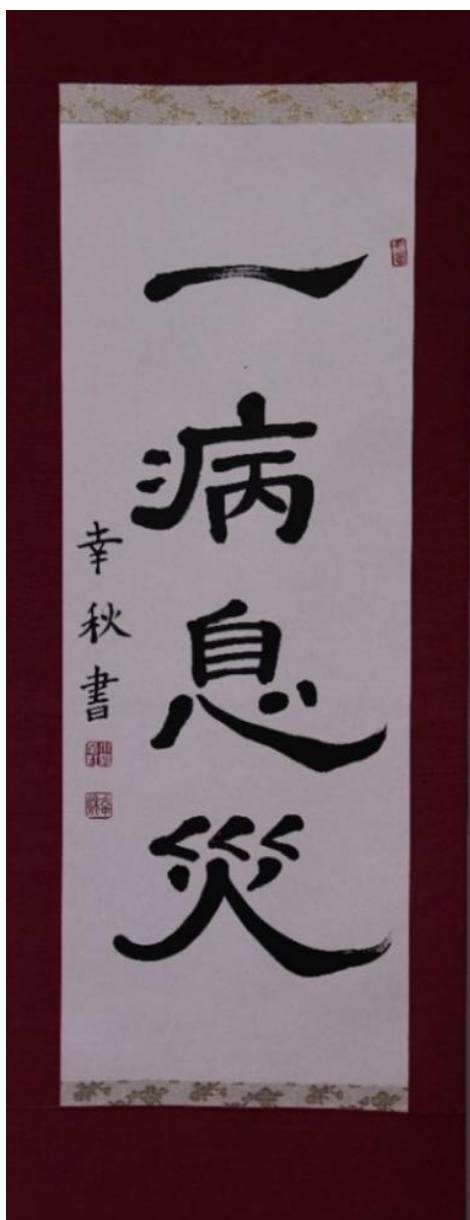 一病息災
幸秋書